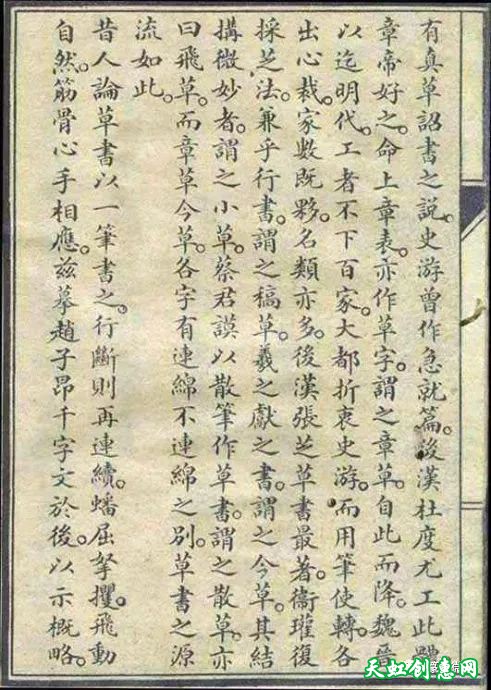 有真草詔書之說。史游曾作急就篇。後漢杜度尤工此體
章帝好之。命上章表。亦作草字。謂之章草。自此而降。魏晉
以迄明代。工者不下百家。大都折衷史游。而用筆使轉。各
出心裁。家數既夥。名類亦多。後漢張芝草書最著。衞瓘復
採芝法。兼乎行書。謂之稿草。羲之獻之書。謂之今草。其結
搆微妙者。謂之小草。蔡君謨以散筆作草書。謂之散草。亦
曰飛草。而章草今草。各字有連綿不連綿之別。草書之源
流如此。
昔人論草書以一筆書之。行斷則再連續。蟠屈拏攫。飛動
自然。筋骨心手相應。茲摹趙子昂千字文於後。以示概略。
天虹创意网